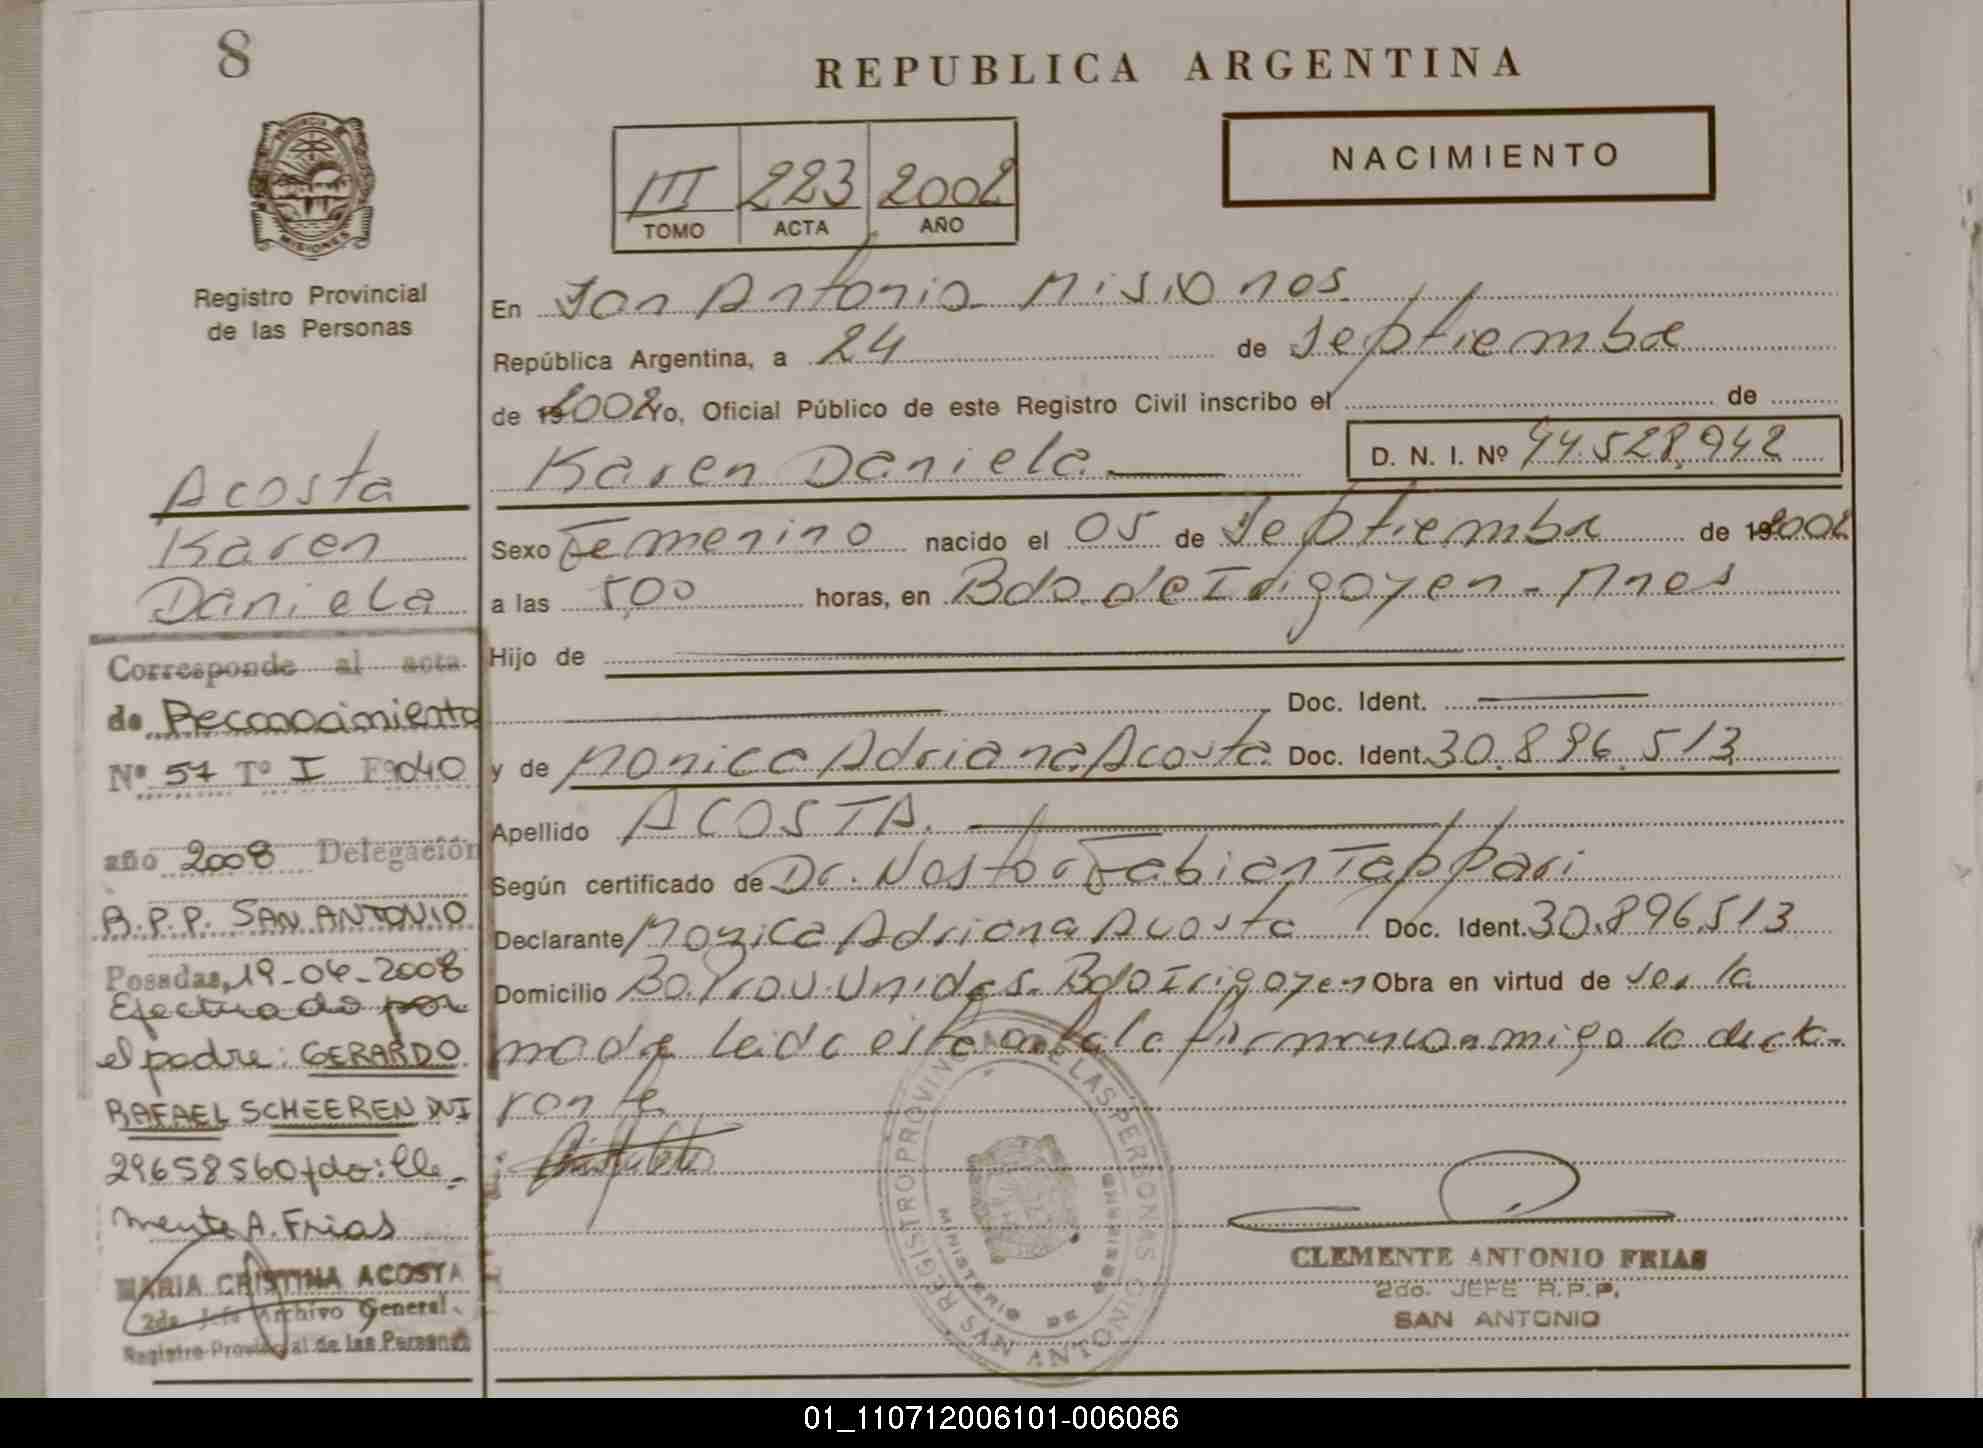 8
REPUBLICA ARGENTINA
NACIMIENTO
III 223 2002
TOMO ACTA AÑO
PROVINCIA DE
MISIONES
Registro Provincial
de las Personas
Acosta
Karen
Daniela
En San Antonio Misiones
República Argentina, a 24 de Septiembre
de 2002 Yo, Oficial Público de este Registro Civil inscribo el de
Karen Daniela D. N. I. Nº 44.528.942
Sexo Femenino nacido el 05 de Septiembre de 2002
a las 5,00 horas, en Bdo. de Irigoyen - Mnes
Hijo de
Doc. Ident.
y de Monica Adriana Acosta Doc. Ident. 30.896.513
Apellido ACOSTA.
Según certificado de Dr. Nestor Fabian Tappari
Declarante Monica Adriana Acosta Doc. Ident. 30.896.513
Domicilio Bo. Prov. Unidas. Bdo Irigoyen Obra en virtud de ser la
madre leida este acta la firma conmigo la decla-
rante
Corresponde al acta
de Reconocimiento
Nº 57 Tº I Fº 040
año 2008 Delegación
R.P.P. SAN ANTONIO
Posadas, 19-06-2008
Efectuado por
el padre: GERARDO
RAFAEL SCHEEREN DNI
29658560 fdo: Cle-
mente A. Frias
MARIA CRISTINA ACOSTA
2da. Jefe Archivo General
Registro Provincial de las Personas
REGISTRO PROVINCIAL DE LAS PERSONAS
MINISTERIO DE GOBIERNO
SAN ANTONIO
CLEMENTE ANTONIO FRIAS
2do. JEFE R.P.P.
SAN ANTONIO
01_110712006101-006086